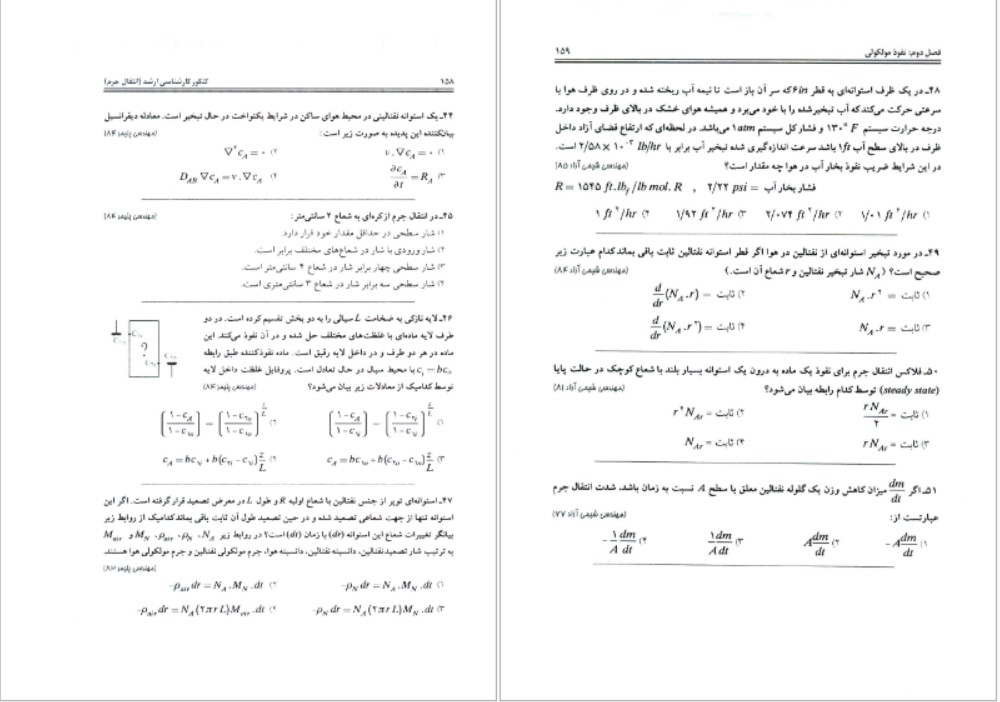 ۱۵۸
کنکور کارشناسی ارشد (انتقال جرم)
۴۴ـ یک استوانه نفتالینی در محیط هوای ساکن در شرایط یکنواخت در حال تبخیر است. معادله دیفرانسیل
بیان‌کننده این پدیده به صورت زیر است: (مهندسی پلیمر ۸۴)
۱) v.∇c_A = ۰ ۲) ∇²c_A = ۰
۳) ∂c_A/∂t = R_A ۴) D_AB ∇c_A = v.∇c_A
۴۵ـ در انتقال جرم از کره‌ای به شعاع ۲ سانتی‌متر: (مهندسی پلیمر ۸۴)
۱) شار سطحی در حداقل مقدار خود قرار دارد.
۲) شار ورودی با شار در شعاع‌های مختلف برابر است.
۳) شار سطحی چهار برابر شار در شعاع ۴ سانتی‌متر است.
۴) شار سطحی سه برابر شار در شعاع ۳ سانتی‌متری است.
۴۶ـ لایه نازکی به ضخامت L سیالی را به دو بخش تقسیم کرده است. در دو
طرف لایه ماده‌ای با غلظت‌های مختلف حل شده و در آن نفوذ می‌کند. این
ماده در هر دو طرف و در داخل لایه رقیق است. ماده نفوذکننده طبق رابطه
با محیط سیال در حال تعادل است. پروفایل غلظت داخل لایه
توسط کدامیک از معادلات زیر بیان می‌شود؟ (مهندسی پلیمر ۸۴)
۴۷ـ استوانه‌ای توپر از جنس نفتالین با شعاع اولیه R و طول L در معرض تصعید قرار گرفته است. اگر این
استوانه تنها از جهت شعاعی تصعید شده و در حین تصعید طول آن ثابت باقی بماند کدامیک از روابط زیر
بیانگر تغییرات شعاع این استوانه (dr) با زمان (dt) است؟ در روابط زیر N_A، ρ_N، ρ_air، M_N و M_air
به ترتیب شار تصعید نفتالین، دانسیته نفتالین، دانسیته هوا، جرم مولکولی نفتالین و جرم مولکولی هوا هستند.
(مهندسی پلیمر ۸۳)
۱) -ρ_N dr = N_A.M_N.dt ۲) -ρ_air dr = N_A.M_N.dt
۳) -ρ_N dr = N_A(۲πrL)M_N.dt ۴) -ρ_air dr = N_A(۲πrL)M_air.dt
فصل دوم: نفوذ مولکولی
۱۵۹
۴۸ـ در یک ظرف استوانه‌ای به قطر ۶in که سر آن باز است تا نیمه آب ریخته شده و در روی ظرف هوا با
سرعتی حرکت می‌کند که آب تبخیرشده را با خود می‌برد و همیشه هوای خشک در بالای ظرف وجود دارد.
درجه حرارت سیستم ۱۳۰° F و فشار کل سیستم ۱atm می‌باشد. در لحظه‌ای که ارتفاع فضای آزاد داخل
ظرف در بالای سطح آب ۱ft باشد سرعت اندازه‌گیری شده تبخیر آب برابر با lb/hr است.
در این شرایط ضریب نفوذ بخار آب در هوا چه مقدار است؟ (مهندسی شیمی آزاد ۸۵)
R = ۱۵۴۵ ft.lb_f / lb mol.R , ۲/۲۲ psi = فشار بخار آب
۱) ۱/۰۱ ft²/hr ۲) ۲/۰۷۴ ft²/hr ۳) ۱/۹۲ ft²/hr ۴) ۱ ft²/hr
۴۹ـ در مورد تبخیر استوانه‌ای از نفتالین در هوا اگر قطر استوانه نفتالین ثابت باقی بماند کدام عبارت زیر
صحیح است؟ (N_A شار تبخیر نفتالین و r شعاع آن است.) (مهندسی شیمی آزاد ۸۴)
۱) ثابت = N_A.r² ۲) ثابت = d/dr(N_A.r)
۳) ثابت = N_A.r ۴) ثابت = d/dr(N_A.r²)
۵۰ـ فلاکس انتقال جرم برای نفوذ یک ماده به درون یک استوانه بسیار بلند با شعاع کوچک در حالت پایا
(steady state) توسط کدام رابطه بیان می‌شود؟ (مهندسی شیمی آزاد ۸۱)
۱) ثابت = rN_Ar/۲ ۲) ثابت = r²N_Ar
۳) ثابت = rN_Ar ۴) ثابت = N_Ar
۵۱ـ اگر dm/dt میزان کاهش وزن یک گلوله نفتالین معلق با سطح A نسبت به زمان باشد، شدت انتقال جرم
عبارتست از: (مهندسی شیمی آزاد ۷۷)
۱) -A dm/dt ۲) A dm/dt ۳) ۱/A dm/dt ۴) -۱/A dm/dt